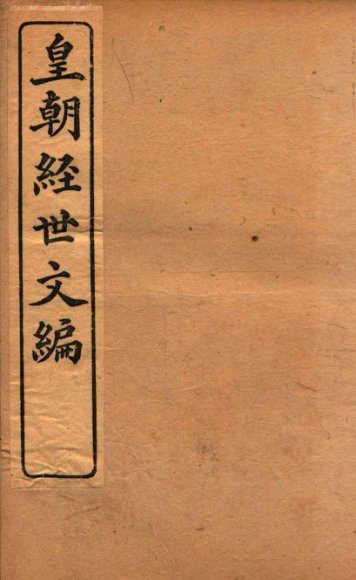 皇朝経世文編